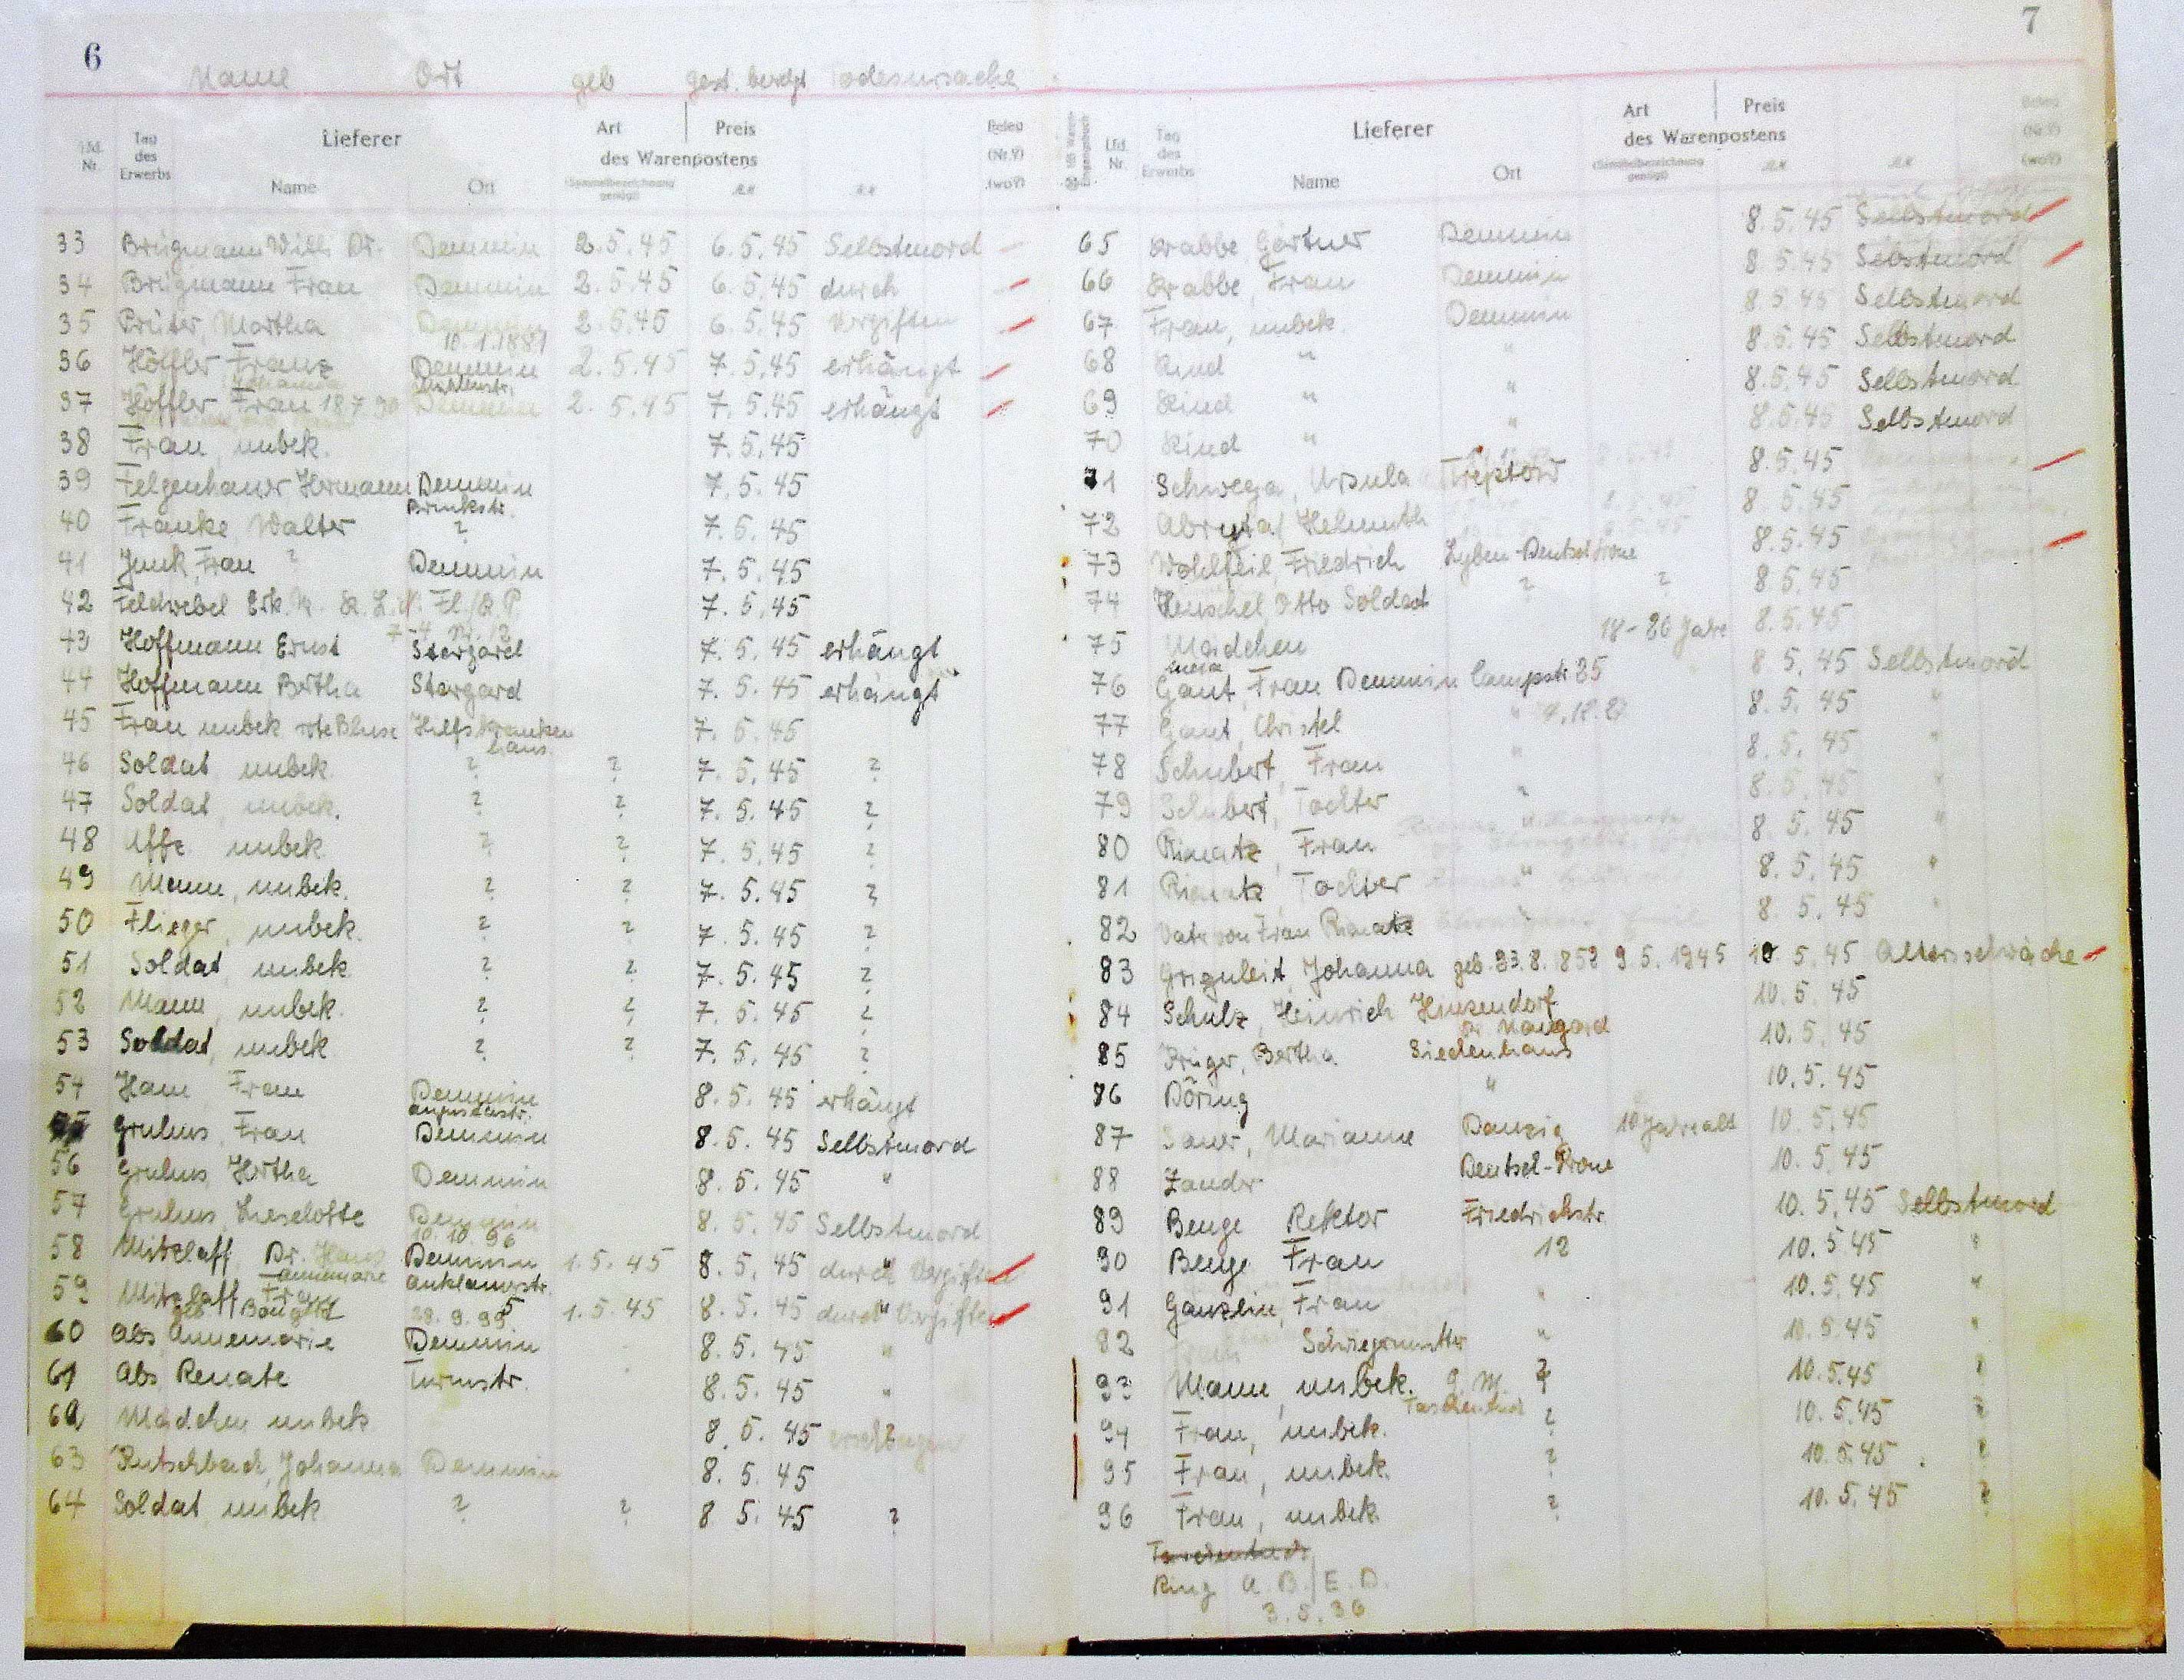 6
Name Ort geb gest. beerdgt Todesursache
Lfd. Nr. Tag des Erwerbs Lieferer Name Ort Art des Warenpostens Preis Beleg (Nr.?) (wo?)
33 Brügmann Willi Dr. Demmin 2.5.45 6.5.45 Selbstmord
34 Brügmann Frau Demmin 2.5.45 6.5.45 durch
35 Prüter, Martha Demmin 2.5.45 6.5.45 Vergiften
10.1.1881
36 Höffler Franz Demmin 2.5.45 7.5.45 erhängt
37 Höffler Frau 18.7.90 Demmin 2.5.45 7.5.45 erhängt
38 Frau, unbek. 7.5.45
39 Felgenhauer Hermann Demmin 7.5.45
Brinkstr.
40 Franke Walter ? 7.5.45
41 Junk, Frau ? Demmin 7.5.45
42 Feldwebel Erk. 7.5.45
43 Hoffmann Ernst Stargard 7.5.45 erhängt
44 Hoffmann Bertha Stargard 7.5.45 erhängt
45 Frau unbek rote Bluse Hilfskranken 7.5.45
haus.
46 Soldat unbek. ? ? 7.5.45 ?
47 Soldat, unbek. ? ? 7.5.45 ?
48 Uffz unbek. ? ? 7.5.45 ?
49 Mann, unbek. ? ? 7.5.45 ?
50 Flieger, unbek. ? ? 7.5.45 ?
51 Soldat, unbek ? ? 7.5.45 ?
52 Mann, unbek. ? ? 7.5.45 ?
53 Soldat, unbek ? ? 7.5.45 ?
54 Ham Frau Demmin 8.5.45 erhängt
Augustastr.
55 Gruhus, Frau Demmin 8.5.45 Selbstmord
56 Gruhus, Hertha Demmin 8.5.45 "
57 Gruhus, Lieselotte Demmin 8.5.45 Selbstmord
10.10.96
58 Mitzlaff, Dr. Hans Demmin 1.5.45 8.5.45 durch Vergiften
Annemarie Anklamerstr.
59 Mitzlaff Frau 1.5.45 8.5.45 durch Vergiften
60 Abs Annemarie Demmin 8.5.45 "
61 Abs, Renate Turmstr. 8.5.45 "
62 Mädchen unbek 8.5.45
63 Rutschbach, Johanna Demmin 8.5.45
64 Soldat, unbek ? ? 8 5.45 ?
7
Lfd. Nr. Tag des Erwerbs Lieferer Name Ort Art des Warenpostens Preis Beleg (Nr.?) (wo?)
65 Krabbe, Gärtner Demmin 8.5.45 Selbstmord
66 Krabbe, Frau Demmin 8.5.45 Selbstmord
67 Frau, unbek. Demmin 8.5.45 Selbstmord
68 Kind " " 8.5.45 Selbstmord
69 Kind " " 8.5.45 Selbstmord
70 Kind " " 8.5.45 Selbstmord
71 Schwega, Ursula Treptow 8.5.45
72 Helmuth 8.5.45
73 Wohlfeil, Friedrich 8.5.45
74 Henschel, Otto Soldat ? ? 8.5.45
75 Mädchen 18-20 Jahre 8.5.45
76 Gaut, Frau Demmin Campstr 25 8.5.45 Selbstmord
77 Gaut, Christel " 8.5.45 "
78 Schubert, Frau " 8.5.45 "
79 Schubert, Tochter " 8.5.45 "
80 Rimatz, Frau " 8.5.45 "
81 Rimatz, Tochter " 8.5.45 "
82 Vater von Frau Rimatz " 8.5.45 "
83 Griguleit, Johanna geb. 23.8.852 9.5.1945 10.5.45 Altersschwäche
84 Schulz, Heinrich Hinzendorf 10.5.45
Kr. Naugard
85 Krüger, Bertha Siechenhaus 10.5.45
86 Döring " 10.5.45
87 Sauer, Marianne Danzig 10 Jahre alt 10.5.45
88 Zander Deutsch-Krone 10.5.45
89 Benge Rektor Friedrichstr. 10.5.45 Selbstmord
90 Benge Frau 12 10.5.45 "
91 Ganzlin, Frau " 10.5.45 "
92 Schwiegermutter " 10.5.45 "
93 Mann, unbek. G.M. ? 10.5.45 ?
Taschentuch
94 Frau, unbek. ? 10.5.45 ?
95 Frau, unbek. ? 10.5.45 ?
96 Frau, unbek. ? 10.5.45 ?
Taschentuch
Ring A.B./E.D.
3.5.36